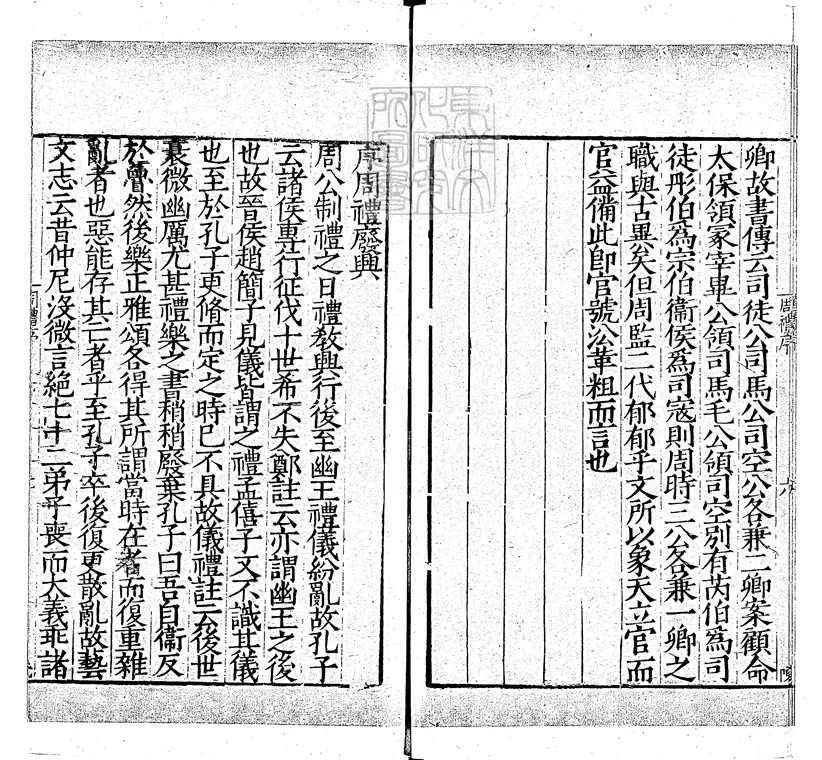 卿故書傳云司徒公司馬公司空公各兼二卿案顧命
太保領冢宰畢公領司馬毛公領司空別有芮伯爲司
徒彤伯爲宗伯衞侯爲司寇則周時三公各兼一卿之
職與古異矣但周監二代郁郁乎文所以象天立官而
官益備此即官號㳂革粗而言也
周禮序
六
序周禮廢興
周公制禮之日禮敎興行後至幽王禮儀紛亂故孔子
云諸侯專行征伐十世希不失鄭註云亦謂幽王之後
也故晉侯趙簡子見儀皆謂之禮孟僖子又不識其儀
也至於孔子更脩而定之時已不具故儀禮註云後世
衰微幽厲尤甚禮樂之書稍稍廢棄孔子曰吾自衞反
於魯然後樂正雅頌各得其所謂當時在者而復重雜
亂者也惡能存其亡者乎至孔子卒後復更散亂故藝
文志云昔仲尼沒微言絕七十二弟子喪而大義乖諸